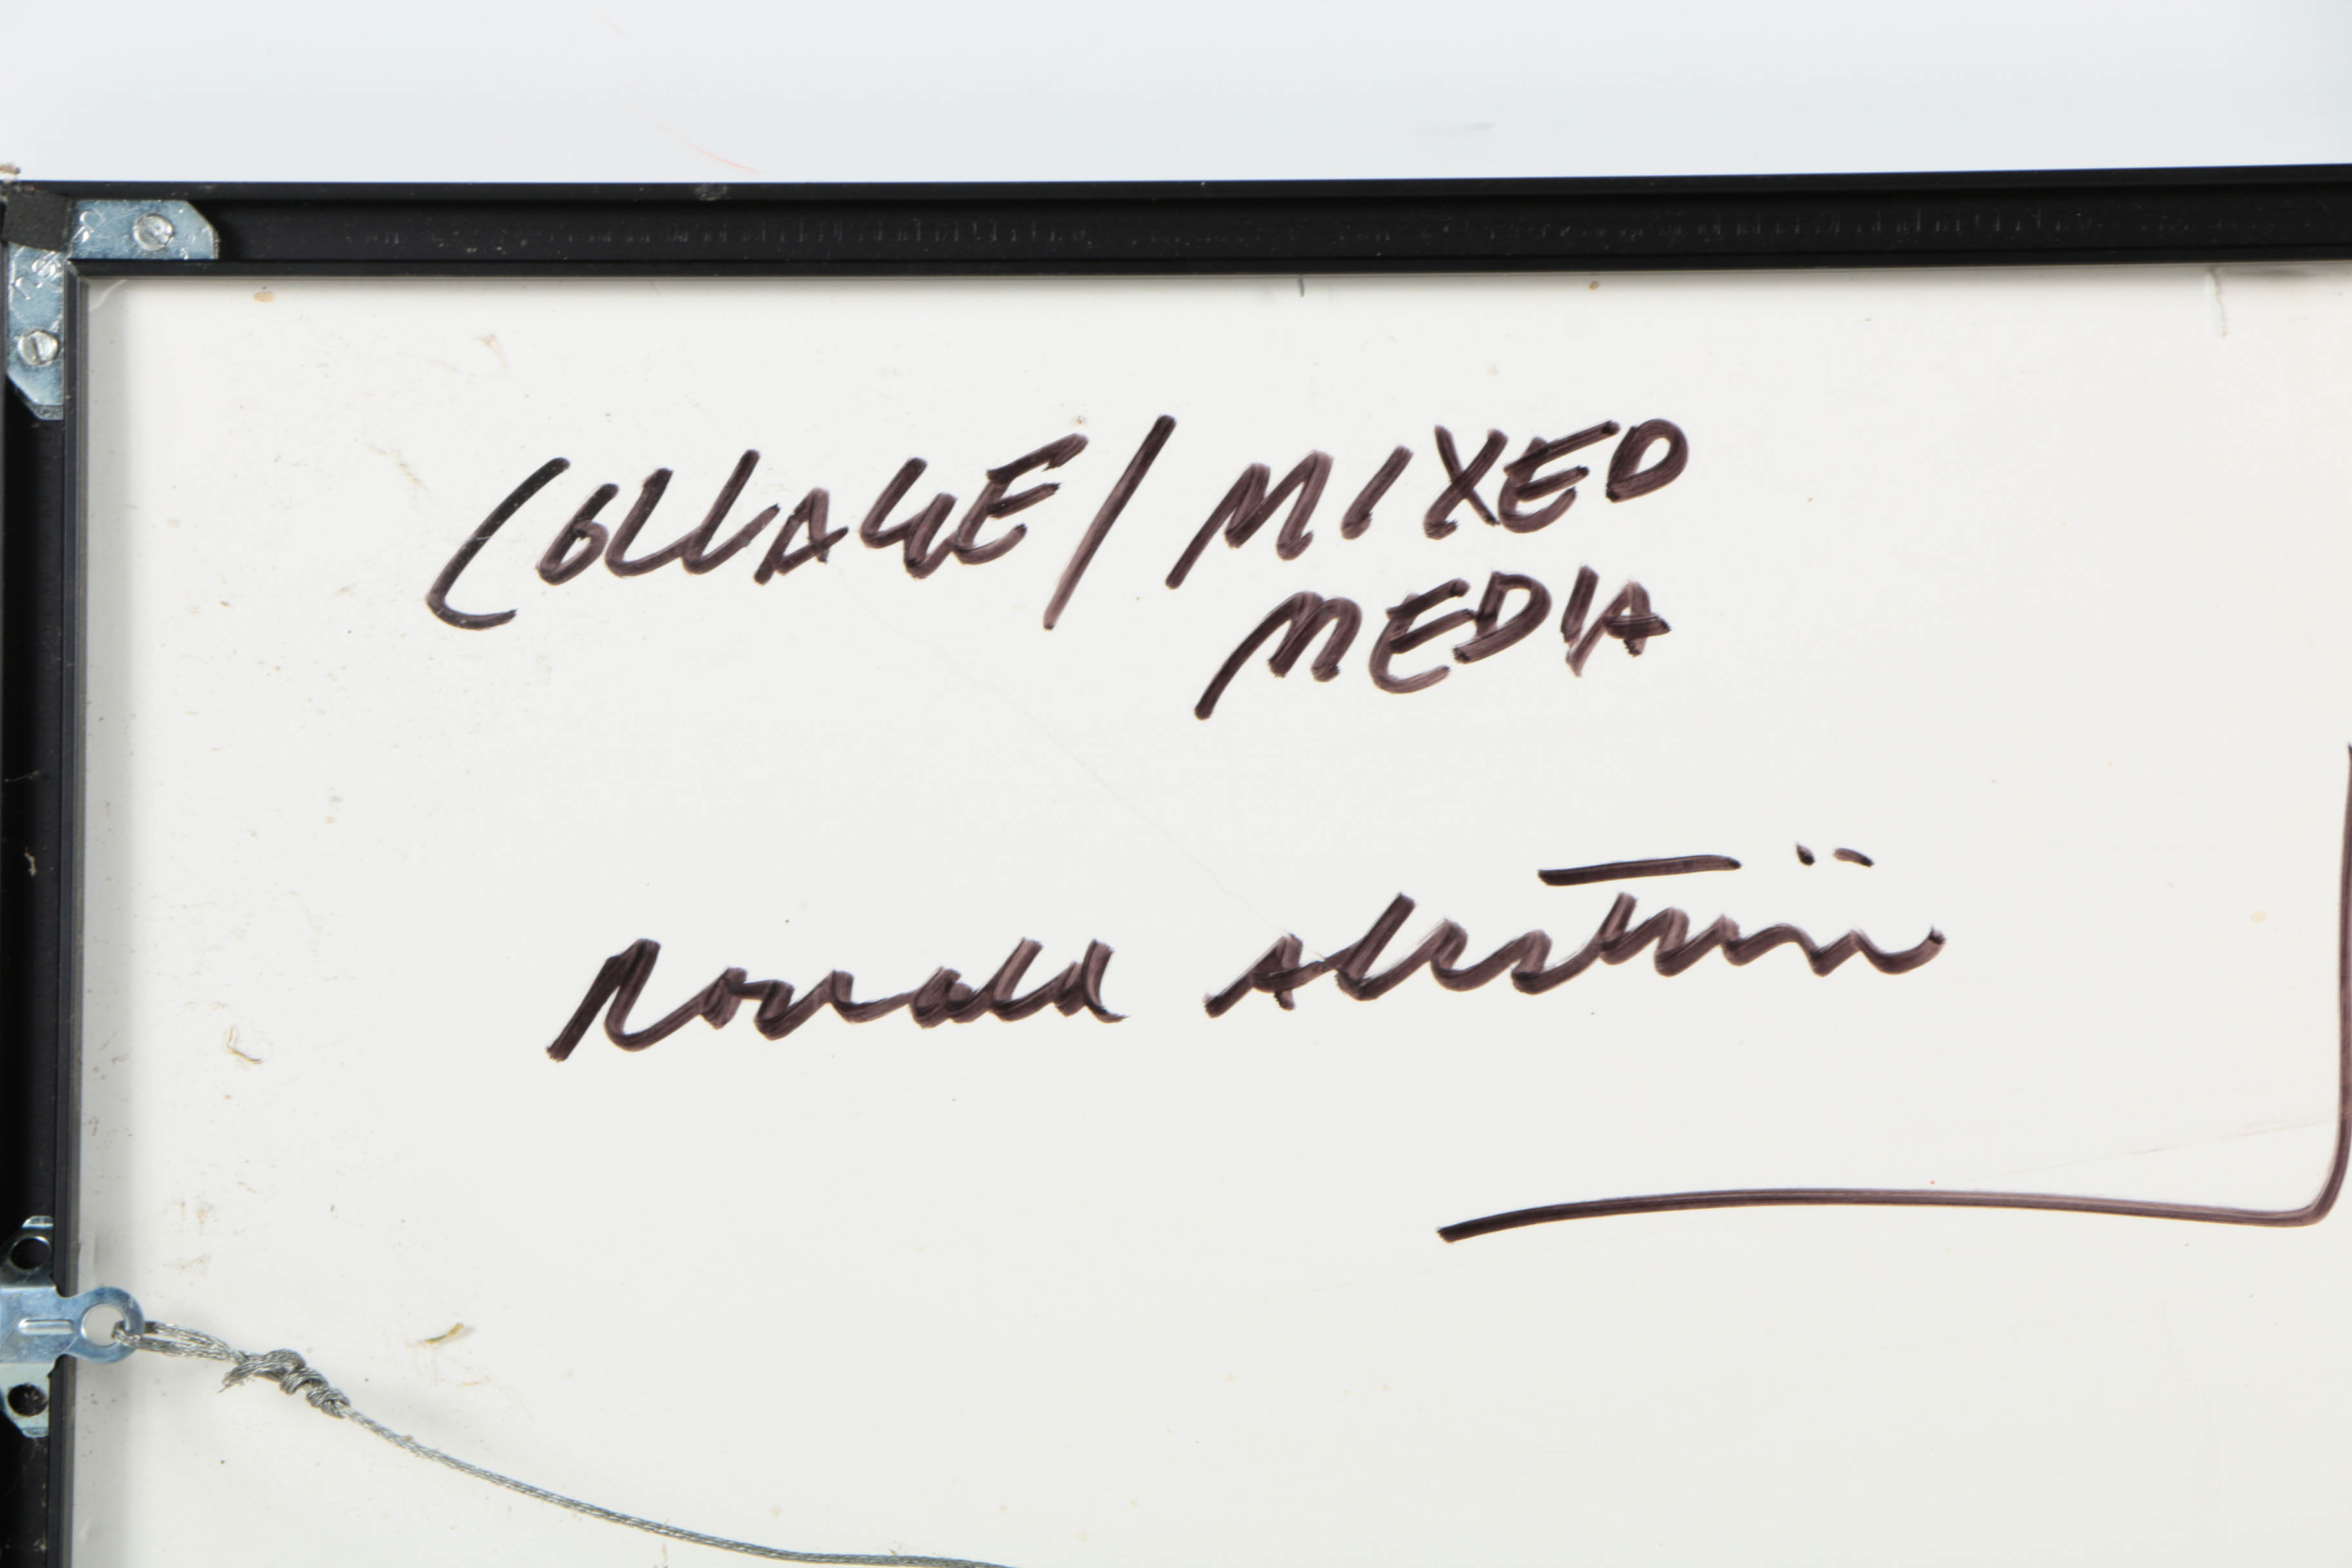 COLLAGE / MIXED
MEDIA
Ronald Ahlström